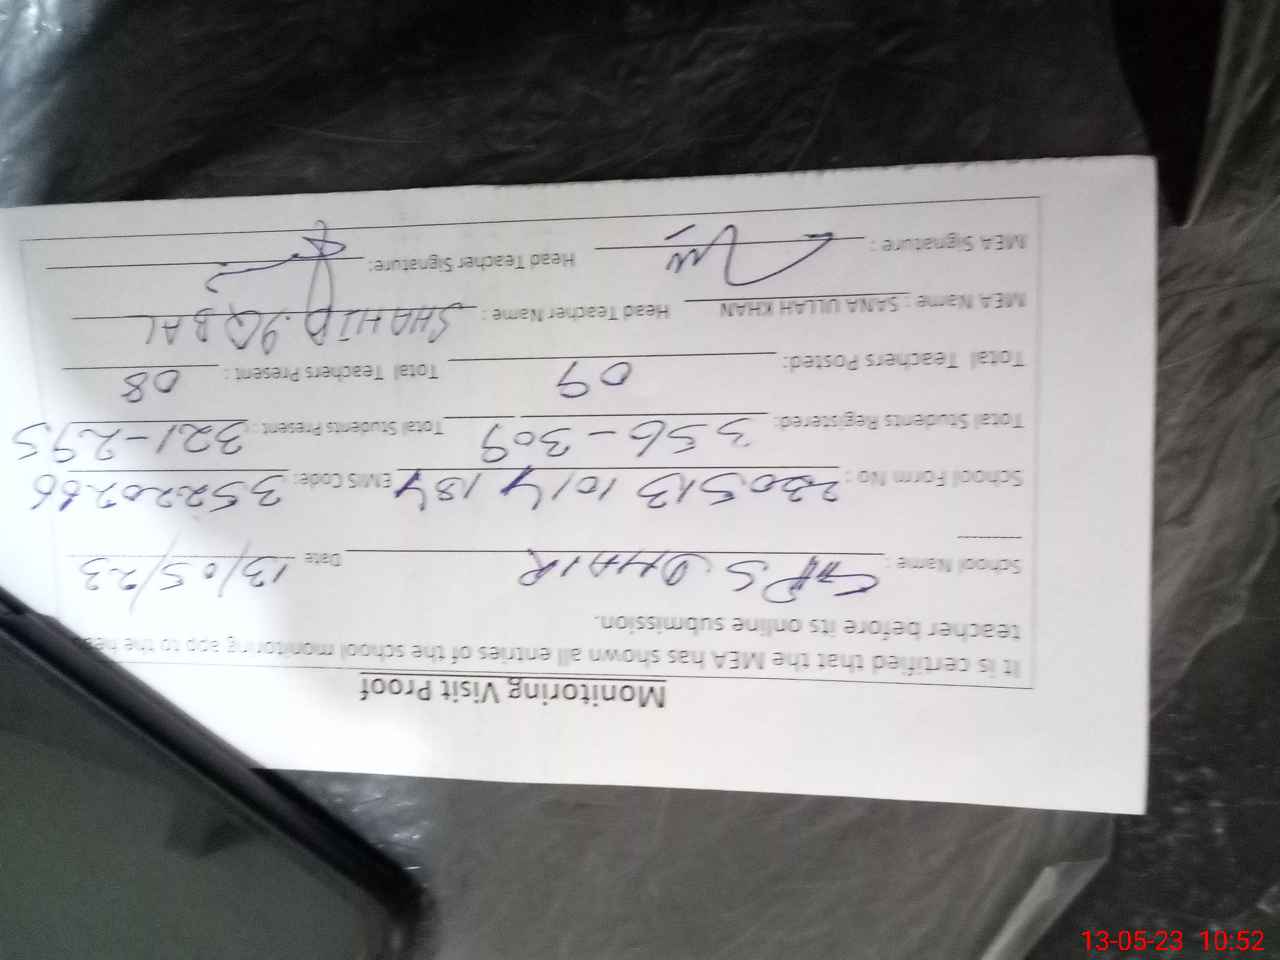 Monitoring Visit Proof
It is certified that the MEA has shown all entries of the school monitoring app to the head
teacher before its online submission.
School Name : GPS DHAIR Date 13/05/23
School Form No : 230513 1014 184 EMIS Code: 35220266
Total Students Registered: 356-309 Total Students Present : 321-295
Total Teachers Posted: 09 Total Teachers Present : 08
MEA Name : SANA ULLAH KHAN Head Teacher Name : SHAHID IQBAL
MEA Signature : Head Teacher Signature:
13-05-23 10:52